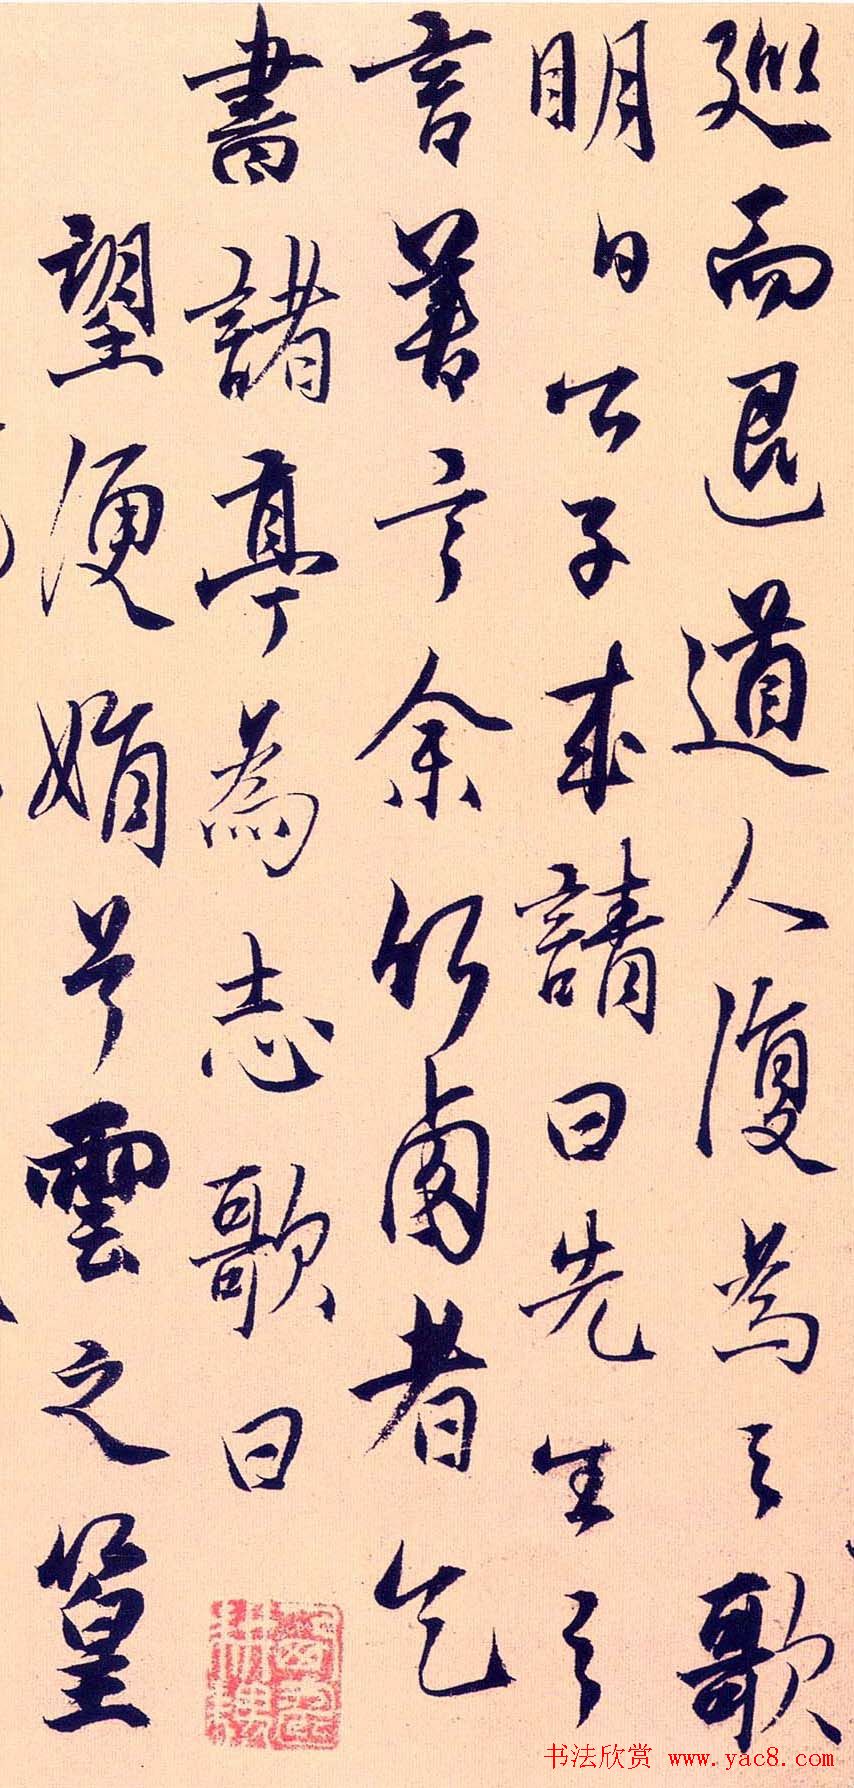 廵而退道人復為之歌
明日公子来請曰先生之
言善言余竹西者乞
書諸亭為志歌曰
望便娟兮雲之篁
书法欣赏 www.yac8.com